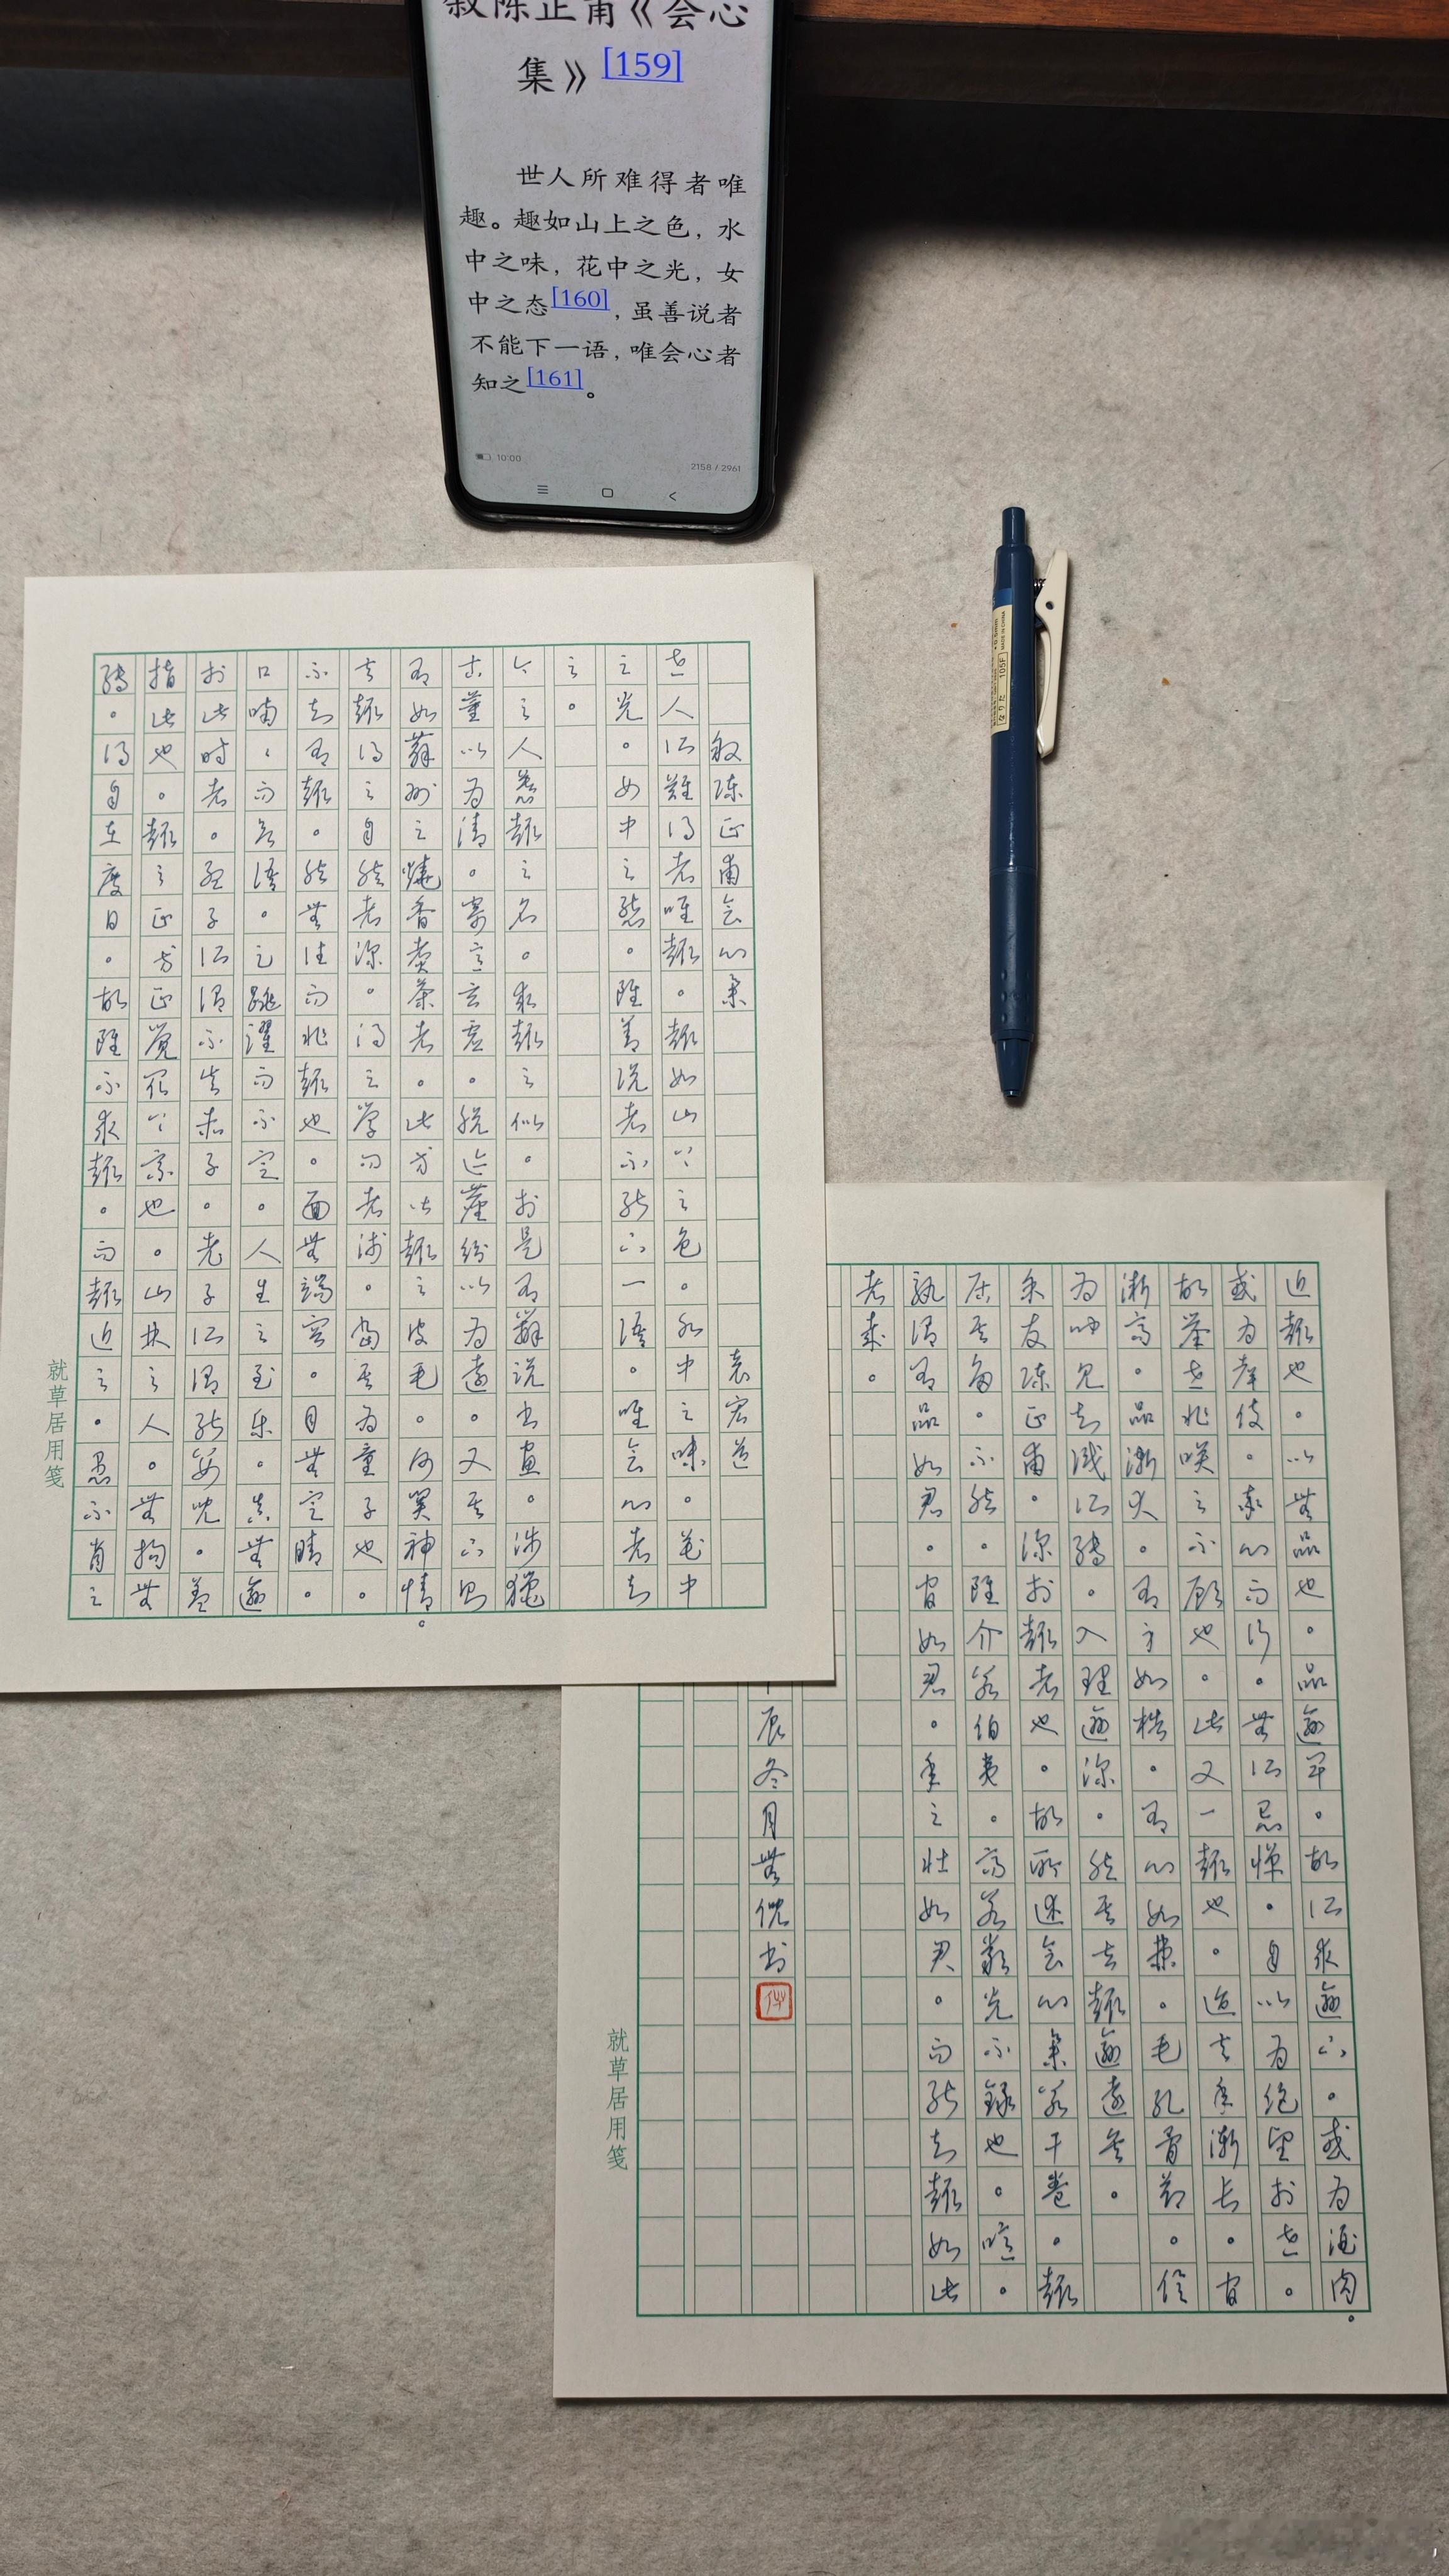 叙陈正甫《会心
集》[159]
世人所难得者唯
趣。趣如山上之色，水
中之味，花中之光，女
中之态[160]，虽善说者
不能下一语，唯会心者
知之[161]。
10:00
2158 / 2961
叙陈正甫会心集 袁宏道
世人所難得者唯趣。趣如山上之色。水中之味。花中
之光。女中之態。雖善说者不能下一语。唯会心者知
之。
今之人慕趣之名。求趣之似。於是有辯说書畫。涉獵
古董以为清。寄意玄虚。脱迹塵紛以为遠。又其下则
有如蘇州之燒香煮茶者。此等皆趣之皮毛。何関神情。
夫趣得之自然者深。得之學问者淺。當其为童子也。
不知有趣。然無往而非趣也。面無端容。目無定睛。
口喃喃而欲语。足跳躍而不定。人生之至乐。真無逾
於此时者。孟子所谓不失赤子。老子所谓能嬰兒。蓋
指此也。趣之正等正覺最上乘也。山林之人。無拘無
縛。得自在度日。故雖不求趣。而趣近之。愚不肖之
近趣也。以無品也。品逾卑。故所求逾下。或为酒肉。
或为聲伎。率心而行。無所忌憚。自以为绝望於世。
故舉世非笑之不顧也。此又一趣也。迨夫年漸长。官
漸高。品漸大。有身如梏。有心如棘。毛孔骨節。俱
为闻见知識所縛。入理逾深。然其去趣逾遠矣。
余友陈正甫。深於趣者也。故所述会心集若干卷。趣
居其多。不然。雖介若伯夷。高若嚴光。不録也。噫。
孰谓有品如君。官如君。年之壯如君。而能知趣如此
者哉。
辰冬月
書
就草居用笺
就草居用笺
0.5mm MADE IN CHINA
なりた 105F